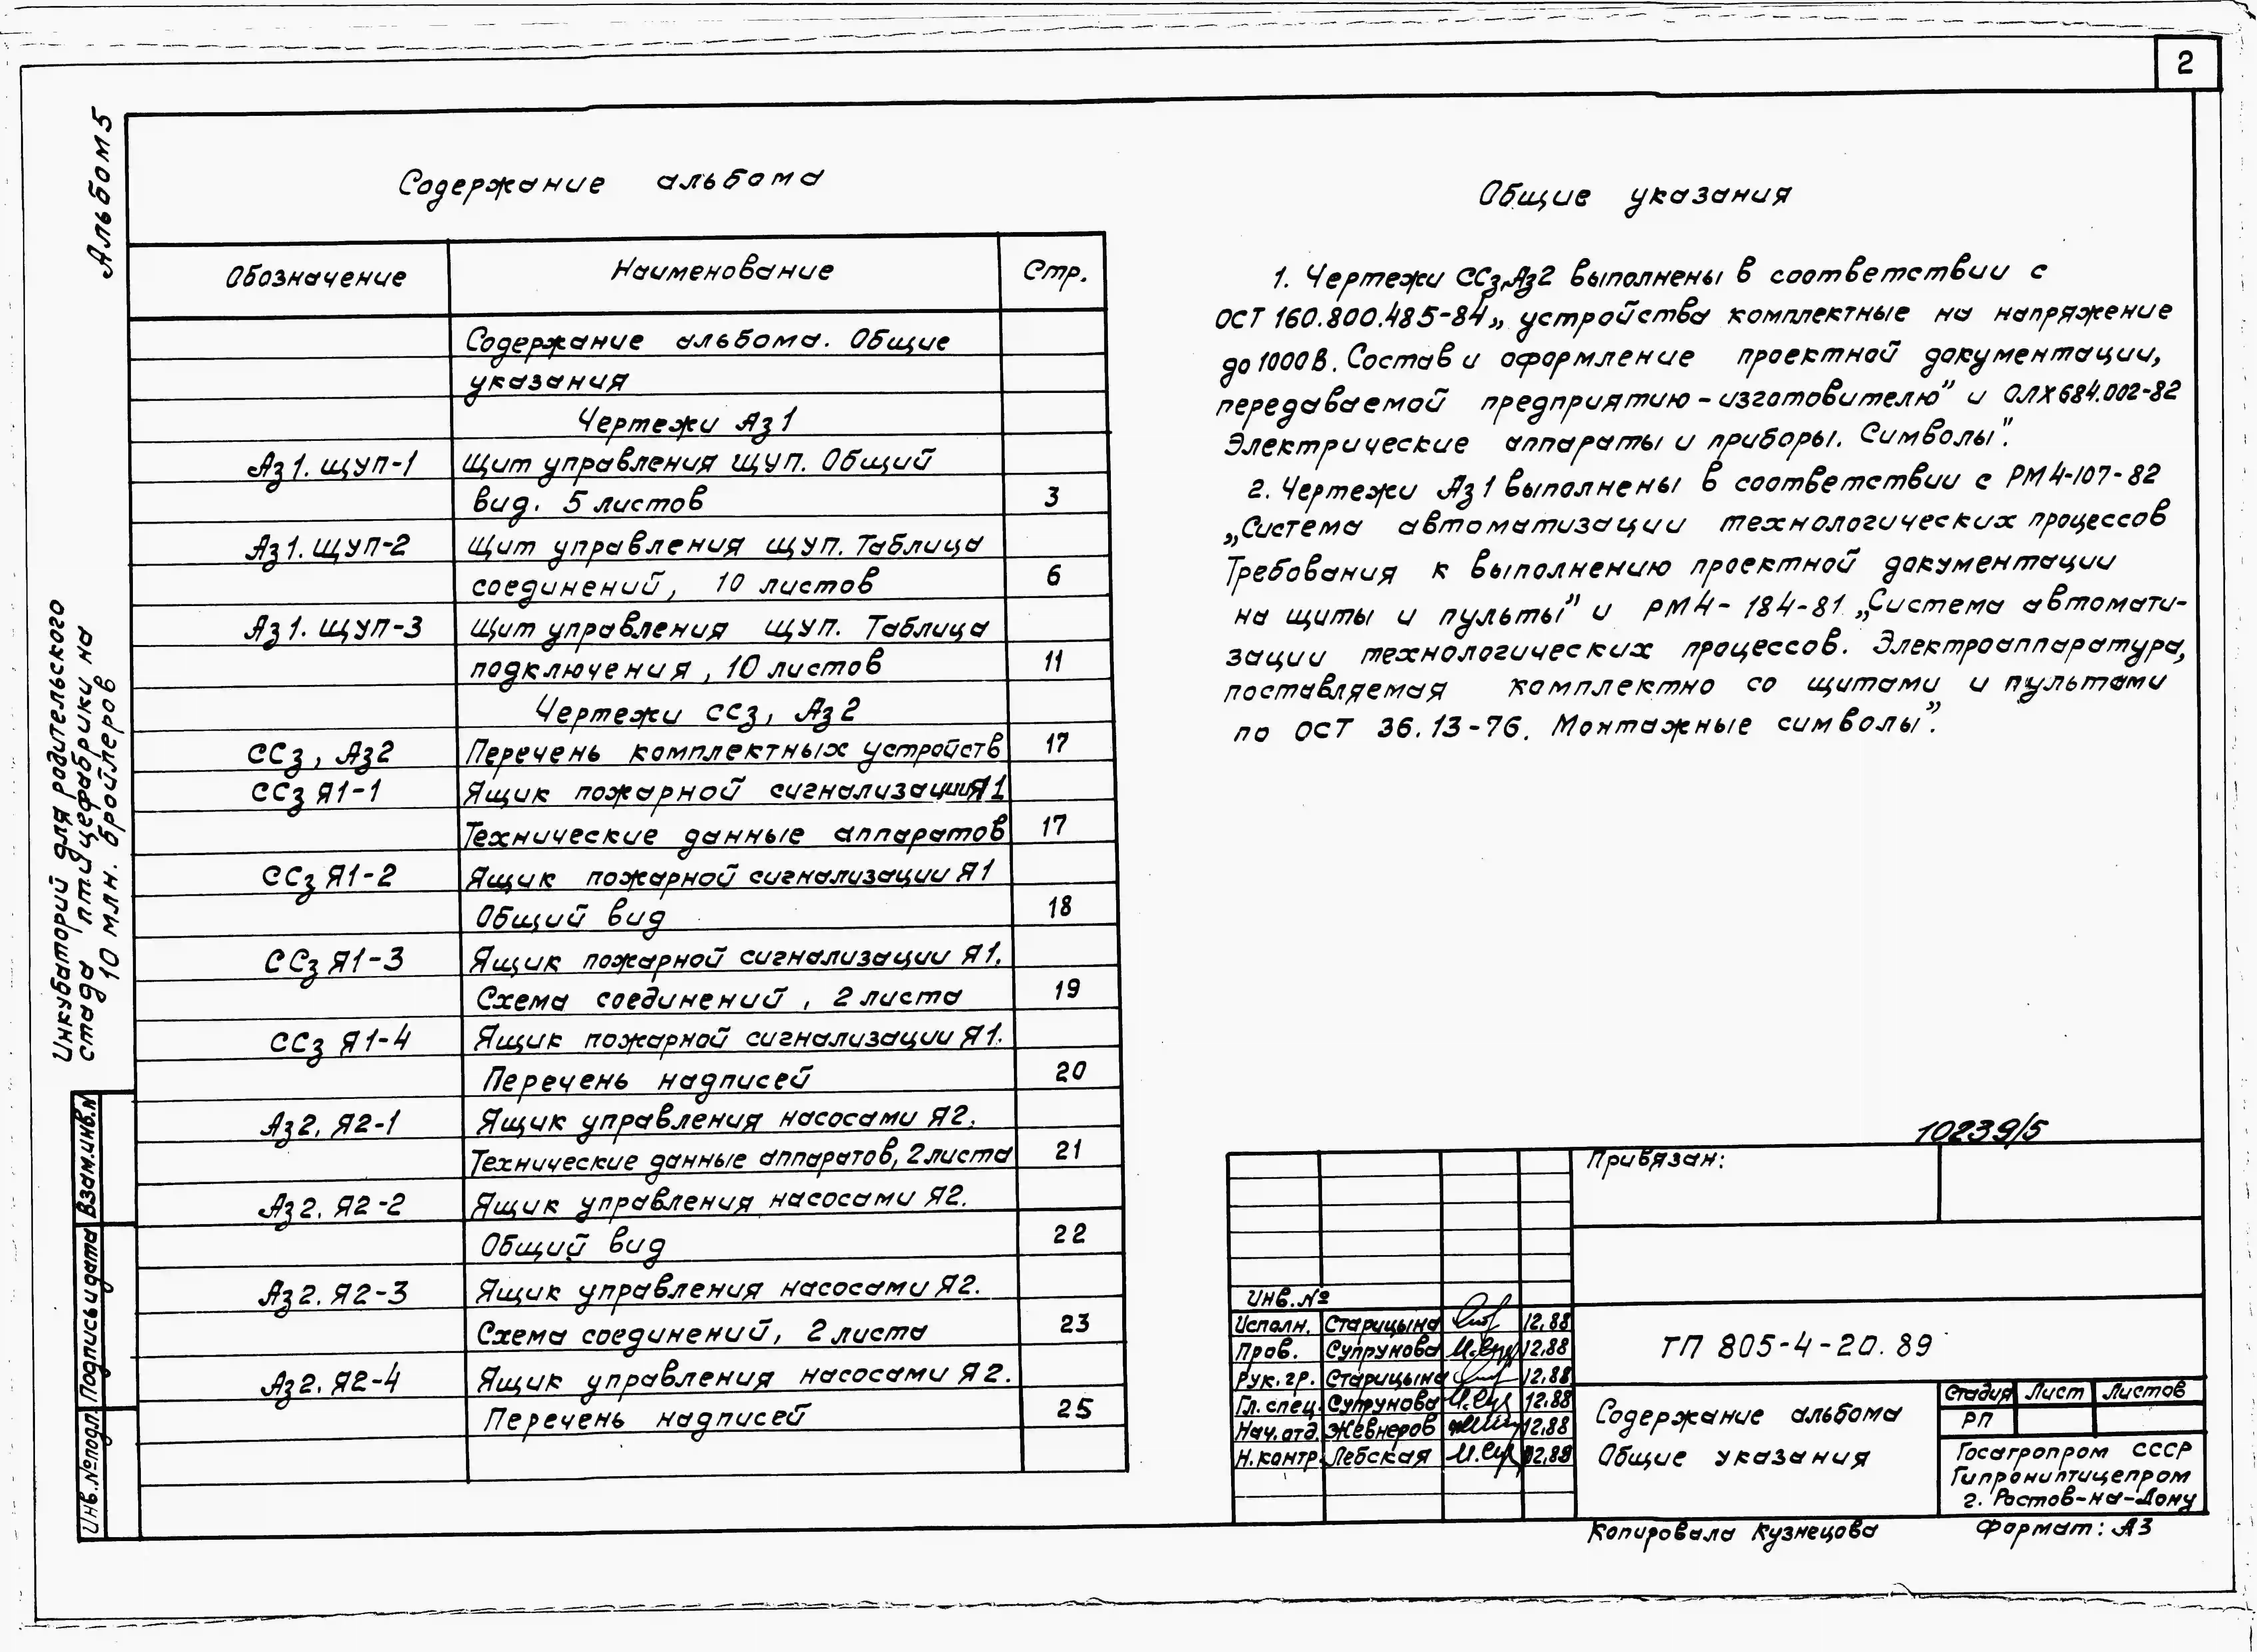 2
Альбом 5
Инкубаторий для родительского
стада птицефабрики на
10 млн. бройлеров
Взам.инв.N
Подпись и дата
Инв.№подл.
Содержание альбома
Обозначение Наименование Стр.
Содержание альбома. Общие
указания
Чертежи Аз1
Аз1. ЩУП-1 Щит управления ЩУП. Общий
вид. 5 листов 3
Аз1. ЩУП-2 Щит управления ЩУП. Таблица
соединений, 10 листов 6
Аз1. ЩУП-3 Щит управления ЩУП. Таблица
подключения, 10 листов 11
Чертежи ССз, Аз2
ССз, Аз2 Перечень комплектных устройств 17
ССз Я1-1 Ящик пожарной сигнализации Я1
Технические данные аппаратов 17
ССз Я1-2 Ящик пожарной сигнализации Я1
Общий вид 18
ССз Я1-3 Ящик пожарной сигнализации Я1.
Схема соединений, 2 листа 19
ССз Я1-4 Ящик пожарной сигнализации Я1.
Перечень надписей 20
Аз2. Я2-1 Ящик управления насосами Я2.
Технические данные аппаратов, 2 листа 21
Аз2. Я2-2 Ящик управления насосами Я2.
Общий вид 22
Аз2. Я2-3 Ящик управления насосами Я2.
Схема соединений, 2 листа 23
Аз2. Я2-4 Ящик управления насосами Я2.
Перечень надписей 25
Общие указания
1. Чертежи ССз,Аз2 выполнены в соответствии с
ОСТ 160.800.485-84 „ устройства комплектные на напряжение
до 1000 В. Состав и оформление проектной документации,
передаваемой предприятию-изготовителю" и ОЛХ684.002-82
Электрические аппараты и приборы. Символы".
2. Чертежи Аз1 выполнены в соответствии с РМ4-107-82
„Система автоматизации технологических процессов
Требования к выполнению проектной документации
на щиты и пульты" и РМ4-184-81 „Система автомати-
зации технологических процессов. Электроаппаратура,
поставляемая комплектно со щитами и пультами
по ОСТ 36.13-76. Монтажные символы".
10239/5
Привязан:
Инв.№
Исполн. Старицына 12.88
Пров. Супрунова 12.88
Рук. гр. Старицына 12.88
Гл. спец. Супрунова 12.88
Нач. отд. Жевнеров 12.88
Н. контр. Лебская 12.88
ТП 805-4-20.89
Содержание альбома
Общие указания
Стадия Лист Листов
РП
Госагропром СССР
Гипрониптицепром
г. Ростов-на-Дону
Копировала Кузнецова Формат: А3